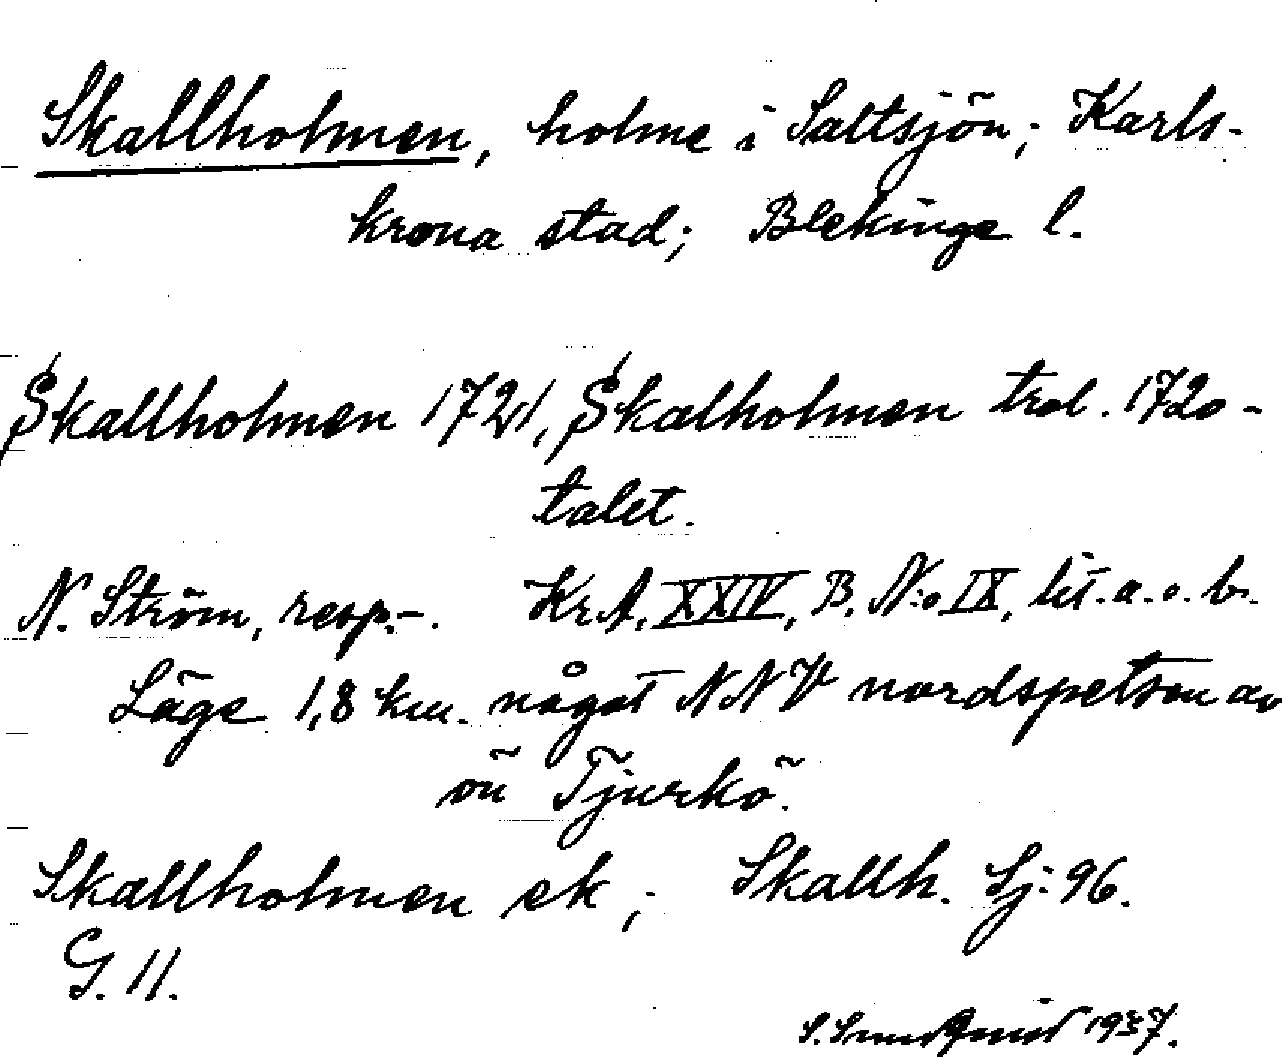 Skallholmen, holme i Saltsjön; Karls-
krona stad; Blekinge l.
Skallholmen 1721, Skalholmen trol. 1720-
talet.
N. Ström, resp.-. KrA, XXIV, B. N:o IX, lit. a. o. b.
Läge 1,8 km. något NNV nordspetsen av
ön Tjurkö.
Skallholmen ek; Skallh. Sj: 96.
G. 11.
S. 1937.